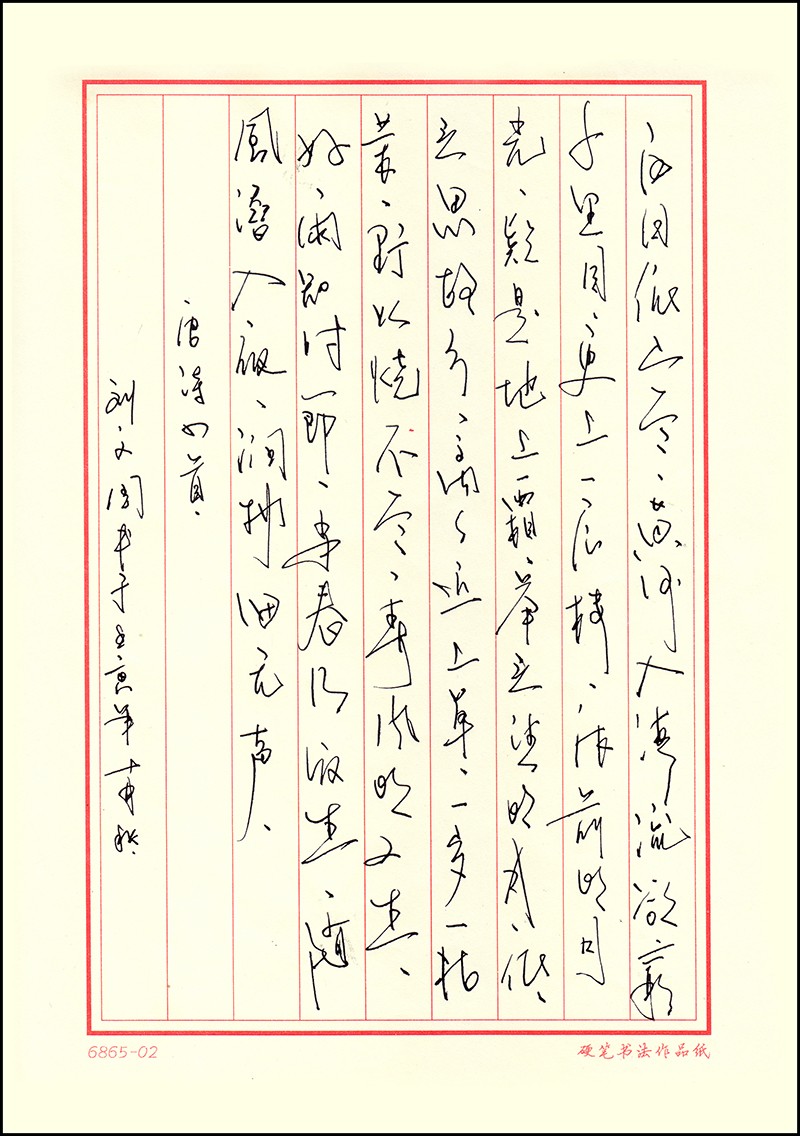 白日依山尽、黄河入海流欲穷
千里目、更上一层楼、床前明月
光、疑是地上霜、举头望明月、低
头思故乡、离々原上草、一岁一枯
荣、野火烧不尽、春风吹又生、
好、雨知时节、当春乃发生、随
風潜入夜、润物细无声、
唐诗四首、
刘文 书于 京
6865-02
硬笔书法作品纸